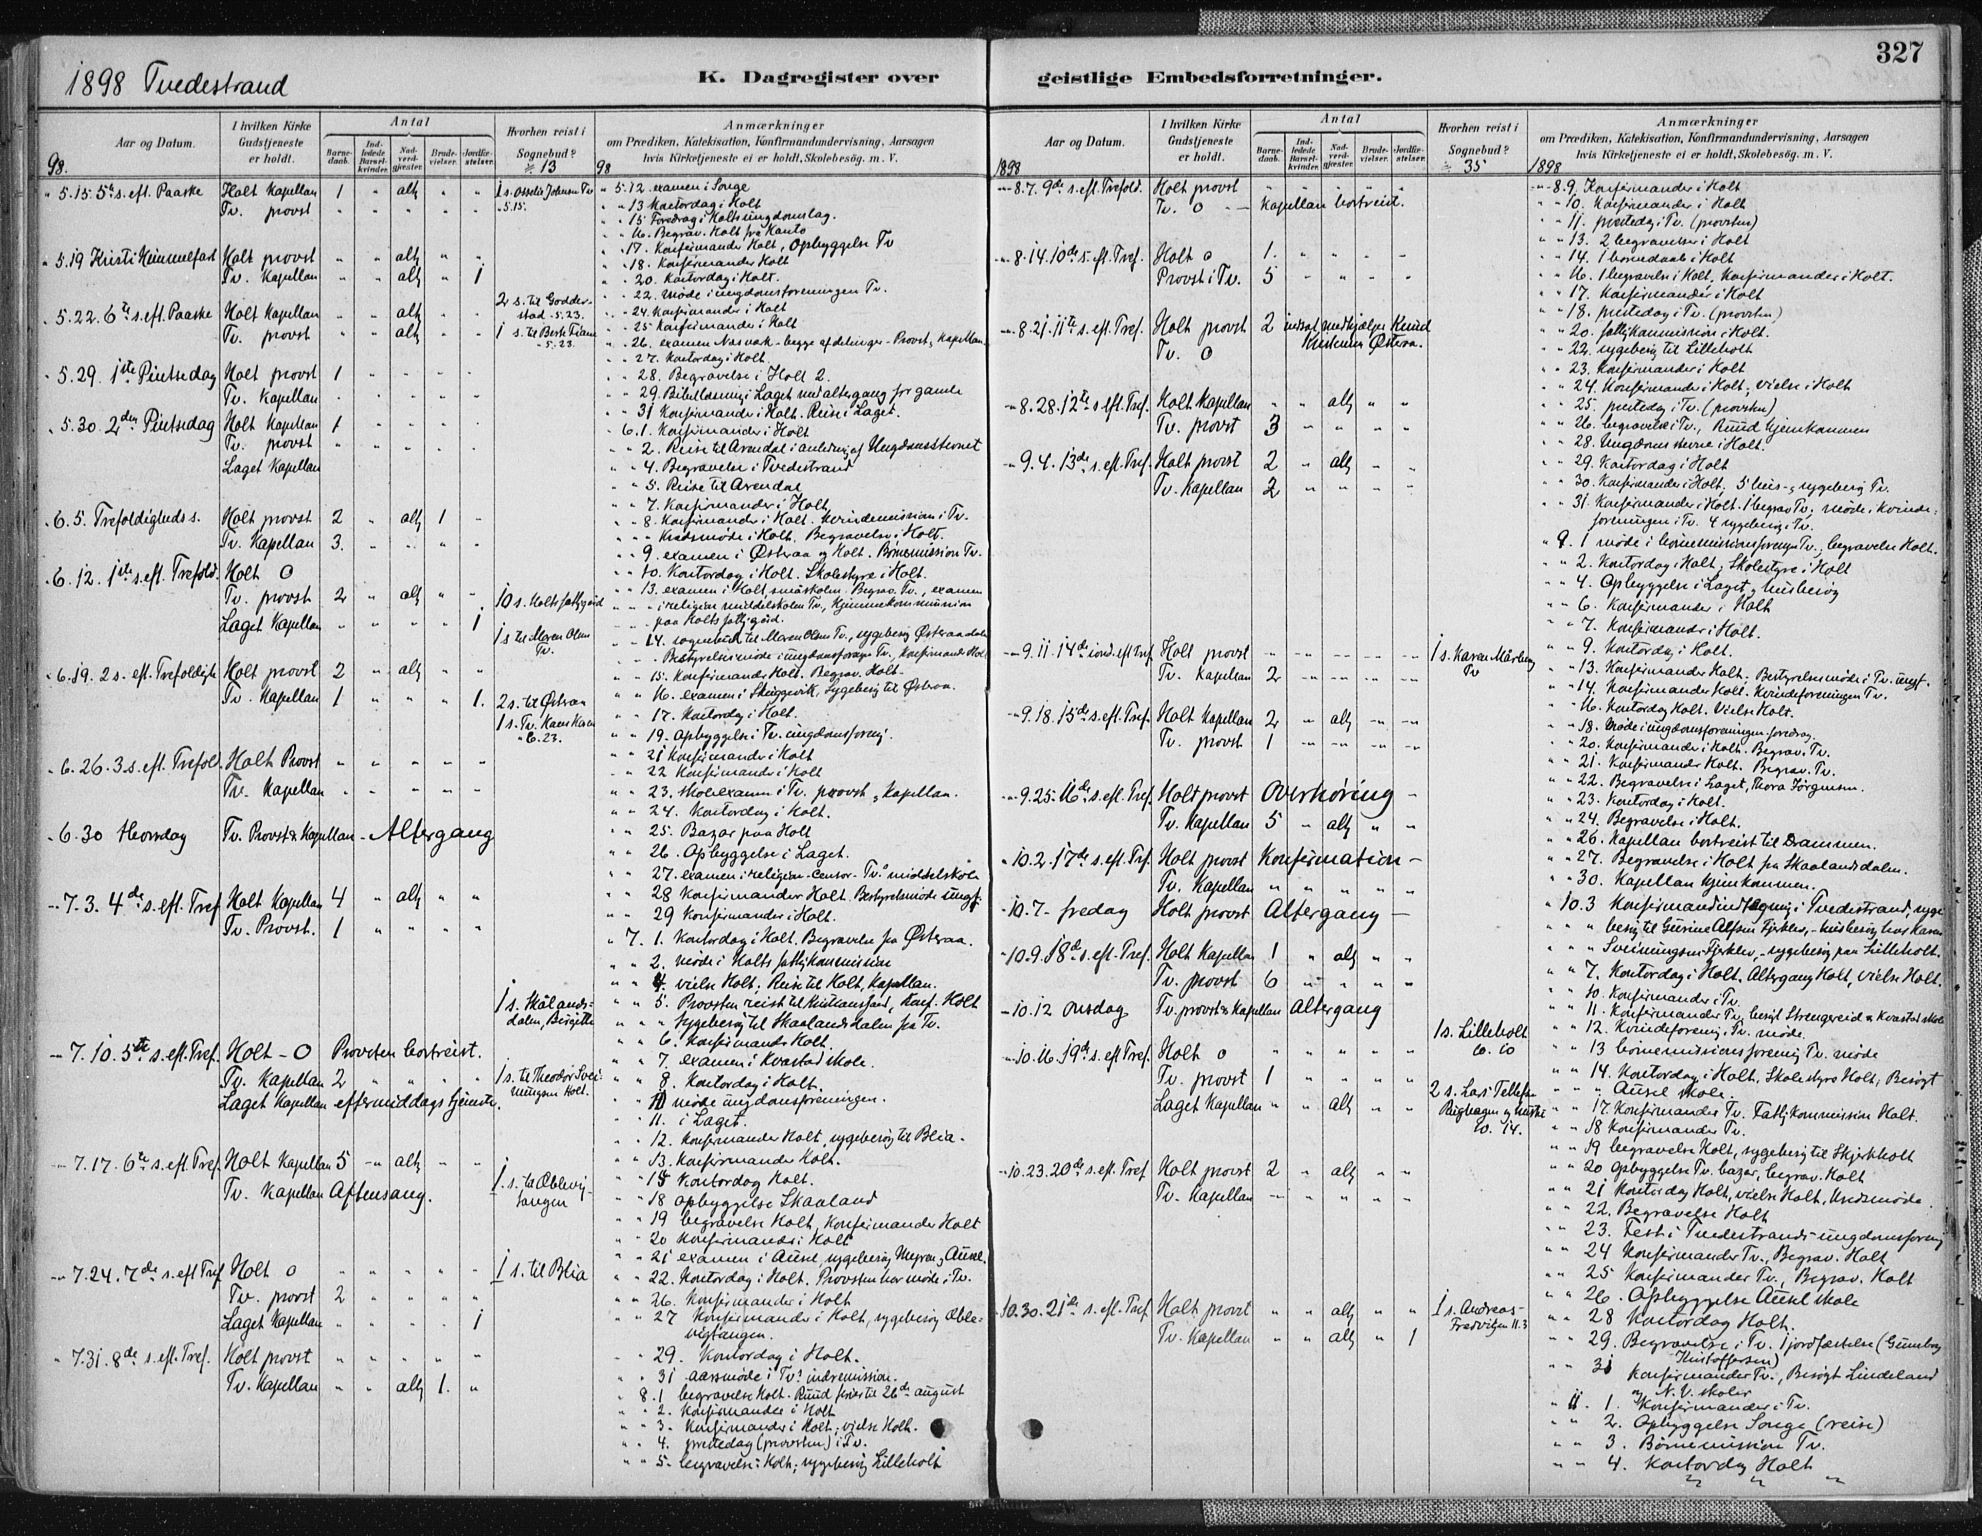 327
1898 Tvedestrand
K. Dagregister over
geistlige Embedsforretninger.
Aar og Datum.
I hvilken Kirke Gudstjeneste er holdt.
Antal
Barnedaab.
Indledede Barselkvinder.
Nadverdgjæster.
Brudevielser.
Jordfæstelser.
Hvorhen reist i Sognebud?
13
Anmærkninger
om Prædiken, Katekisation, Konfirmandundervisning, Aarsagen
hvis Kirketjeneste ei er holdt, Skolebesøg. m. V.
98.
98
" 5.15. 5te s. eft. Paaske Holt Kapellan 1 " altg " "
Tv. provst " " " " "
" 5.19 Kristi Himmelfart Holt provst " " altg " "
Tv. Kapellan " " altg " 1
" 5.22. 6te s. eft. Paaske Holt Kapellan " " altg " " 2 s. til Godderstad 5.23.
Tv. provst " " altg " "
" 5.29. 1ste Pintsedag Holt provst 1 " " " "
Tv. Kapellan
" 5.30. 2den Pintsedag Holt Kapellan 1 " " " "
Tv. provst " " " " "
Laget Kapellan
" 6.5. Trefoldigheds s. Holt provst 2 " altg 1 "
Tv. Kapellan 3. " " " "
" 6.12. 1ste s. eft. Trefold. Holt O
Tv. provst 2 " altg " " 10 s. Holts fattiggaard
Laget Kapellan " " " " 1
" 6.19. 2 s. eft. Trefoldigh. Holt provst 2 " altg " "
Tv. Kapellan 1 " " " 1. 2 s. til Østeraa
" 6.26. 3 s. eft. Trefold. Holt Provst " " " " "
Tv. Kapellan " " " " "
" 6.30 Thorsdag Tv. Provst & Kapellan - Altergang
" 7.3. 4de s. eft. Tref. Holt Kapellan 4 " altg " "
Tv. Provst. 1 " " " "
1 s. Skålandsdalen, Birgitte
" 7.10. 5te s. eft. Tref. Holt - O Provsten bortreist.
Tv. Kapellan 2 " " " "
Laget Kapellan eftermiddagstjeneste.
" 7.17. 6te s. eft. Tref. Holt Kapellan 5 " altg " "
Tv. Kapellan Aftensang.
" 7.24. 7de s. eft Tref Holt O " " " " " 1 s. til Blia
Tv. provst 2 " " " "
Laget Kapellan " " " " 1
" 7.31. 8de s. eft. Tref. Holt provst " " " " "
Tv. Kapellan " " altg 1. "
" 5.12. examen i Songe
" " 13 Kontordag i Holt
" " 15 Foredrag i Holts ungdomslag.
" " 16. Begrav. Holt fra
" " 17. Konfirmander Holt, Opbyggelse Tv
" " 18. Konfirmander Holt
" " 20. Kontordag i Holt.
" " 22. møde i ungdomsforeningen Tv.
" " 24. Konfirmander i Holt
" " 25 Konfirmander i Holt
" " 26. examen Næsværk - begge afdelinger - Provst & Kapellan.
" " 27. Kontordag i Holt.
" " 28. Begravelse i Holt 2.
" " 29. Bibellæsning i Laget med altergang for gamle
" " 31 Konfirmander i Holt. Reise i Laget.
" 6.1. Konfirmander i Holt
" " 2. Reise til Arendal i anledning af Ungdomsstevnet
" " 4. Begravelse i Tvedestrand
" " 5. Reise til Arendal
" " 7. Konfirmander i Holt
" " 8. Konfirmander i Holt. Kvindemission i Tv.
" " " Kredsmøde i Holt. Begravelse i Holt.
" " 9. examen i Østeraa og Holt. Børnemission Tv.
" " 10. Kontordag i Holt. Skolestyre i Holt.
" " 13. examen i Holt, småskolen. Begrav. Tv., examen
" " " i religion middelskolen Tv., Hjemmekommunion
paa Holts fattiggård.
" " 14. sognebud til Maren Olsen Tv., sygebesøg Østeraadalen
" " Bestyrelsesmøde i ungdomsforeningen Tv., Konfirmander Holt
" " 15. Konfirmander Holt. Begrav. Holt.
" " 16. examen i Skuggevik, Sygebesøg til Østeraa.
" " 17. Kontordag i Holt.
" " 19. Opbyggelse i Tv. ungdomsforening.
" " 21 Konfirmander i Holt
" " 22 Konfirmander i Holt
" " 23. Skoleexamen i Tv. provst & Kapellan.
" " 24. Kontordag i Holt.
" " 25. Bazar paa Holt
" " 26. Opbyggelse i Laget.
" " 27. examen i religion - Censor - Tv.s middelskole
" " 28 Konfirmander Holt. Bestyrelsesmøde ungf.
" " 29 Konfirmander i Holt.
" 7. 1. Kontordag i Holt. Begravelse fra Østeraa.
" " 2. møde i Holts fattigkommission
" " 4. vielse Holt; Reise til Holt, Kapellan.
" " 5. Provsten reist til Kristiansand, Konf. Holt
" " " Sygebesøg til Skaalandsdalen fra Tv.
" " 6. Konfirmander Holt.
" " 7. examen i Kvastad skole.
" " 8. Kontordag i Holt.
" " 10 møde ungdomsforeningen.
" " 11. i Laget.
" " 12. Konfirmander Holt, sygebesøg til Blia.
" " 13. Konfirmander Holt.
" " 15 Kontordag Holt.
" " 18 opbyggelse Skaaland
" " 19 begravelse Holt, Konfirmander Holt
" " 20 Konfirmander i Holt
" " 21 examen i Ausel, sygebesøg Ausel.
" " 22. Kontordag i Holt. Provsten har møde i Tv.
" " 26. Konfirmander i Holt
" " 27 Konfirmander i Holt, sygebesøg Øblevigtangen.
" " 29. Kontordag i Holt.
" " 31 aarsmøde i Tv.s indremission.
" 8.1 begravelse Holt. Ruud ferier til 26de august
" " 2. Konfirmander i Holt
" " 3. Konfirmander i Holt; vielse Holt.
" " 4. prestedag (provsten) i Tv.
" " 5. begravelse i Holt; sygebesøg Lilleholt
Aar og Datum.
I hvilken Kirke Gudstjeneste er holdt.
Antal
Barnedaab.
Indledede Barselkvinder.
Nadverdgjæster.
Brudevielser.
Jordfæstelser.
Hvorhen reist i Sognebud?
35
Anmærkninger
om Prædiken, Katekisation, Konfirmandundervisning, Aarsagen
hvis Kirketjeneste ei er holdt, Skolebesøg. m. V.
1898
1898
" 8.7. 9de s. eft. Trefold. Holt provst " " " " "
Tv. O - Kapellan bortreist.
" 8.14. 10de s. eft. Tref. Holt O 1. " " " "
Provst i Tv. 5 " " " "
" 8.21. 11te s. eft. Tref. Holt provst 2 indsat medhjælper Knud
Tv. O Kristensen Østeraa.
" 8.28. 12te s. eft. Tref. Holt Kapellan " " altg " "
Tv. provst 3 " " " "
" 9.4. 13de s. eft. Tref. Holt provst 2 " altg " "
Tv. Kapellan 2 " " " "
" 9.11. 14de sønd. eft Tref Holt provst " " " " " 1 s. Karen Mårberg Tv
Tv. Kapellan 2 " " " "
" 9.18. 15de s. eft. Tref. Holt Kapellan 2 " altg " "
Tv. provst 1 " " " "
" 9.25. 16de s. eft. Tref. Holt provst Overhøring -
Tv. Kapellan 5 " altg " "
" 10.2. 17de s. eft. Tref. Holt provst Konfirmation -
Tv. Kapellan " " " " "
" 10.7. fredag Holt provst Altergang -
" 10.9. 18de s. eft. Tref. Holt Kapellan 1 " altg " "
Tv. provst 6 " " " "
" 10.12 onsdag Tv. provst & Kapellan Altergang
1 s. Lilleholt 10. 10
" 10.16. 19de s. eft Tref. Holt O " " " " "
Tv. provst 1 " " " "
Laget Kapellan " " altg " "
" 10.23. 20de s. eft. Tref Holt provst 2 " altg " "
Tv. Kapellan " " " " "
" 10.30. 21de s. eft. Tref. Holt provst " " altg " " 1 s. Andreas Fredvigsen 11.3
Tv. Kapellan " " altg " 1
" 8.9. Konfirmander i Holt
" " 10. Konfirmander i Holt
" " 11. prestedag i Tv. (provsten)
" " 13. 2 begravelser i Holt
" " 14. 1 barnedaab i Holt
" " 16. 1 begravelse i Holt, Konfirmander i Holt.
" " 17. Konfirmander i Holt
" " 18. prestedag i Tv. (provsten)
" " 20. fattigkommission i Holt.
" " 22. sygebesøg til Lilleholt
" " 23. Konfirmander i Holt
" " 24. Konfirmander i Holt; vielse i Holt
" " 25. prestedag i Tv. (provsten)
" " 26. begravelse i Tv., Ruud hjemkommen
" " 28. Ungdomsstevne i Holt.
" " 29. Kontordag i Holt
" " 30. Konfirmander i Holt. 5 hus- & sygebesøg Tv.
" " 31. Konfirmander i Holt. 1 begrav. Tv. møde i kvindeforeningen i Tv. 4 sygebesøg i Tv.
" 9. 1 møde i børnemissionsforeningen Tv., begravelse Holt.
" " 2. Kontordag i Holt, Skolestyre i Holt
" " 4. Opbyggelse i Laget, husbesøg
" " 6. Konfirmander i Holt
" " 7. Konfirmander i Holt.
" " 9. Kontordag i Holt.
" " 13. Konfirmander Holt. Bestyrelsesmøde i Tv. ungf.
" " 14. Konfirmander Holt. Kvindeforeningen Tv.
" " 16. Kontordag Holt. Vielse Holt.
" " 18. Møde i ungdomsforeningen foredrag.
" " 20. Konfirmander i Holt. Begrav. Tv.
" " 21. Konfirmander Holt. Begrav. Tv.
" " 22. Begravelse i Laget, Thora Jørgensen.
" " 23. Kontordag i Holt.
" " 24. Begravelse i Holt.
" " 26. Kapellan bortreist til Drammen.
" " 27. Begravelse i Holt fra Skaalandsdalen.
" " 30. Kapellan hjemkommen.
" 10.3 Konfirmandindtegning i Tvedestrand, sygebesøg til Gurine Alfsen Fjerklev, - husbesøg hos Karen
" " " Sveinungsen Fjerklev, sygebesøg paa Lilleholt.
" " 7. Kontordag i Holt. Altergang Holt, vielse Holt.
" " 10. Konfirmander i Tv.
" " 11. Konfirmander Tv, besøgt Strengereid & Kvastad skole
" " 12. Kvindeforening Tv. møde.
" " 13 børnemissionsforening Tv. møde
" " 14. Kontordag i Holt, Skolestyre Holt, Besøgt
" " " Ausel skole.
" " 17. Konfirmander Tv. Fattigkommission Holt.
" " 18 Konfirmander Tv.
" " 19 begravelse Holt, sygebesøg til Skjerkholt
" " 20 opbyggelse Tv. bazar, begrav. Holt
" " 21 Kontordag Holt, vielse Holt, Kredsmøde.
" " 22. Begravelse Holt
" " 23. Fest i Tvedestrands ungdomsforening
" " 24 Konfirmander Tv., Begrav. Holt
" " 25 Konfirmander Tv., Begrav. Holt
" " 26. Opbyggelse Ausel skole
" " 28 Kontordag Holt.
" " 29. Begravelse i Tv. 1 jordfæstelse (Gunborg Kristoffersen)
" " 31 Konfirmander Tv., Besøgt Lindeland
og N. V. skoler
" 11. 1. Konfirmander i Tv.
" " 2. Opbyggelse Songe (reise)
" " 3. Børnemission Tv.
" " 4. Kontordag Holt